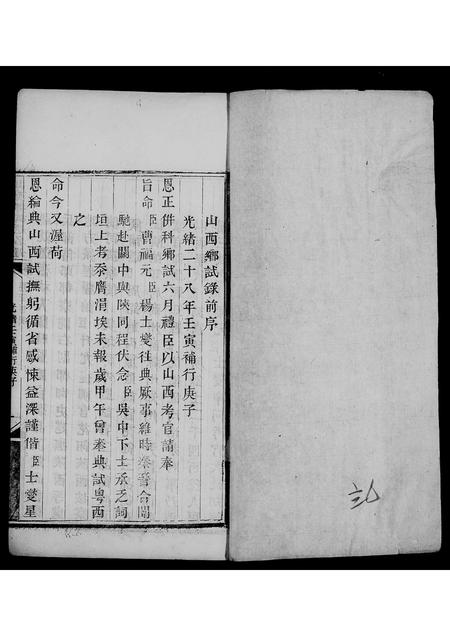 山西鄉試錄前序
光緒二十八年壬寅補行庚子
恩正併科鄉試六月禮臣以山西考官請奉
旨命臣曹福元臣楊士燮往典厥事維時秦晉合闈
馳赴關中與陝同程伏念臣吳中下士承乏詞
垣上考忝膺涓埃未報歲甲午曾奉典試粵西
之
命今又渥荷
恩綸典山西試撫躬循省感悚益深謹偕臣士燮星